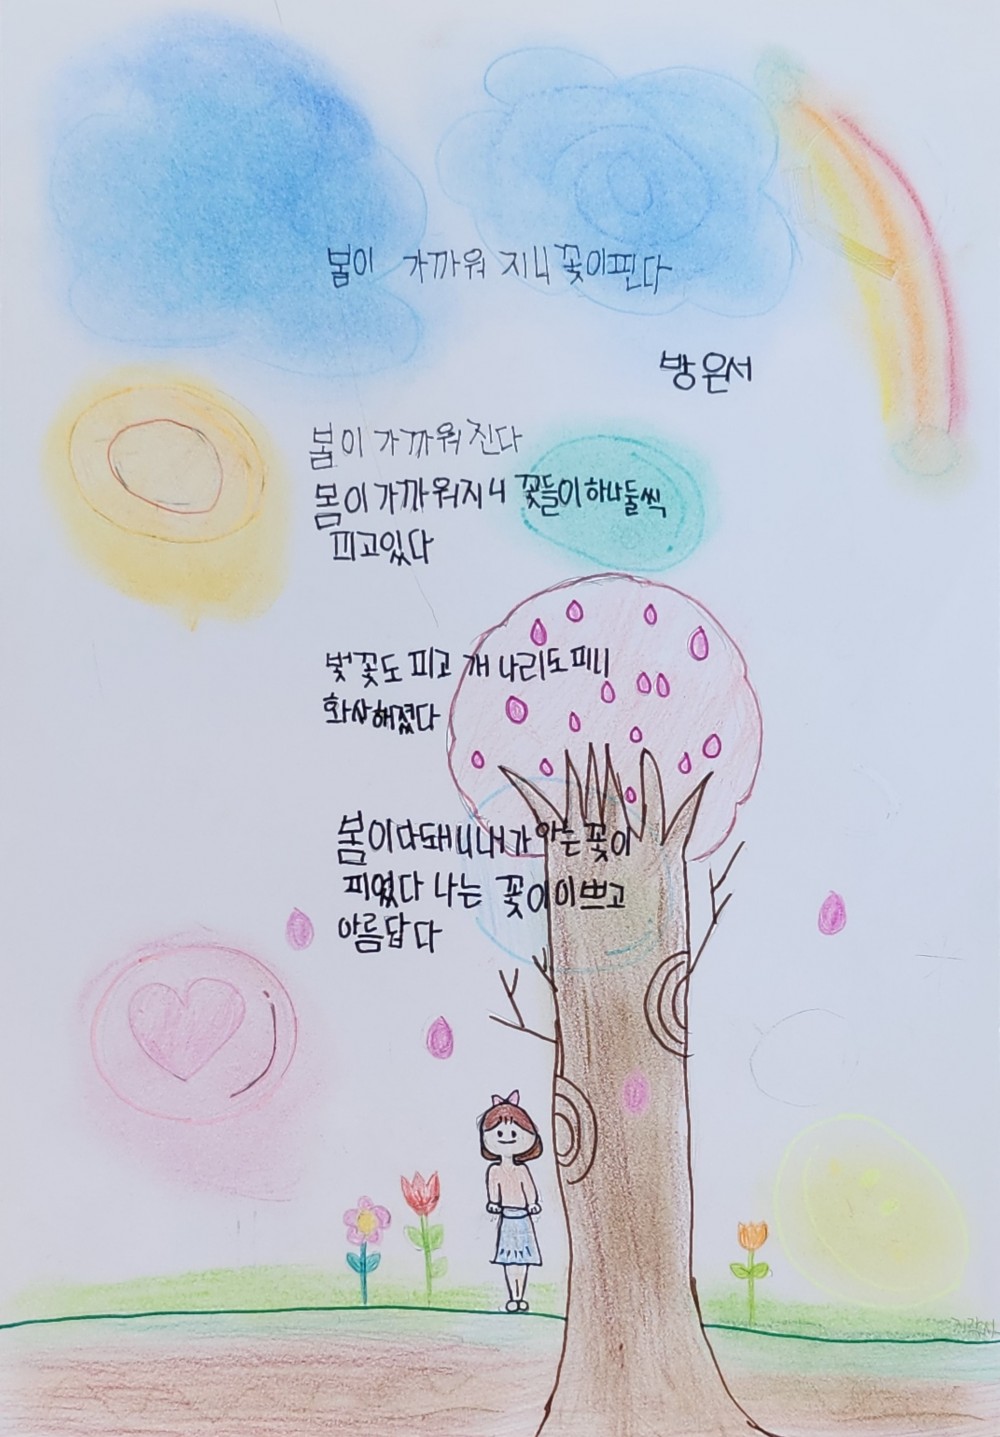 봄이 가까워 지니 꽃이핀다
방은서
봄이 가까워진다
봄이 가까워지니 꽃들이 하나둘씩
피고있다
벚꽃도 피고 개나리도 피니
화사해졌다
봄이 다돼니 내가 아는 꽃이
피였다 나는 꽃이 이쁘고
아름답다